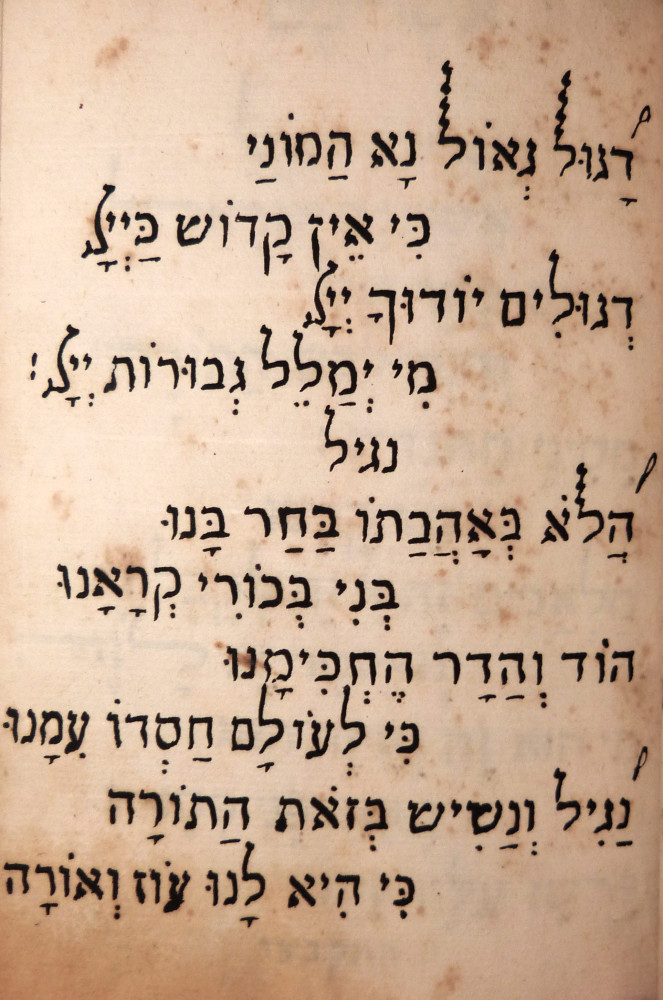 דָגוּל גְאוֹל נָא הַמוֹנַי
כִּי אֵין קָדוֹש כַּיְיָ
דְגוּלִים יוֹדוּךָ יְיָ
מִי יְמַלֵל גְבוּרוֹת יְיָ:
נגיל
הֲלֹא בְּאָהֲבַתוֹ בַּחַר בָּנוּ
בְּנִי בְּכוֹרִי קְרָאָנוּ
הוֹד וְהַדָר הֶחְכִּימָנוּ
כִּי לְעוֹלָם חַסְדוֹ עִמָנוּ
נַגִיל וְנַשִיש בְּזֹאת הַתוֹרָה
כִּי הִיא לָנוּ עוֹז וְאוֹרָה